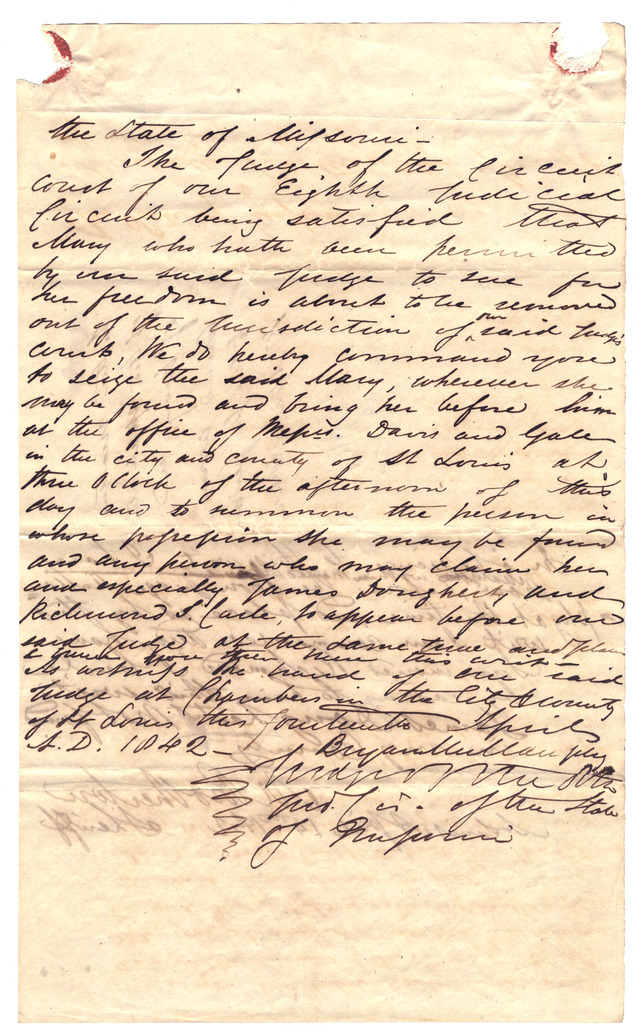 the State of Missouri –
The Judge of the Circuit
court of our Eighth Judicial
Circuit being satisfied that
Mary who hath been permitted
by our said Judge to sue for
her freedom is about to be removed
out of the Jurisdiction of our said Judge's
court, We do hereby command you
to seize the said Mary, wherever she
may be found and bring her before him
at the office of Messrs. Davis and Gale
in the city and county of St Louis at
three O Clock of the afternoon of this
day and to summon the person in
whose possession she may be found
and any person who may claim her
and especially James Dougherty and
Richmond J. Curle, to appear before our
said Judge at the same time and place
& you then there this writ –
As witness the hand of our said
Judge at Chambers in the City & County
of St Louis this fourteenth April
A.D. 1842 – Bryan Mullanphy
Judge of the 8th
Jud. Cir. of the State
of Missouri